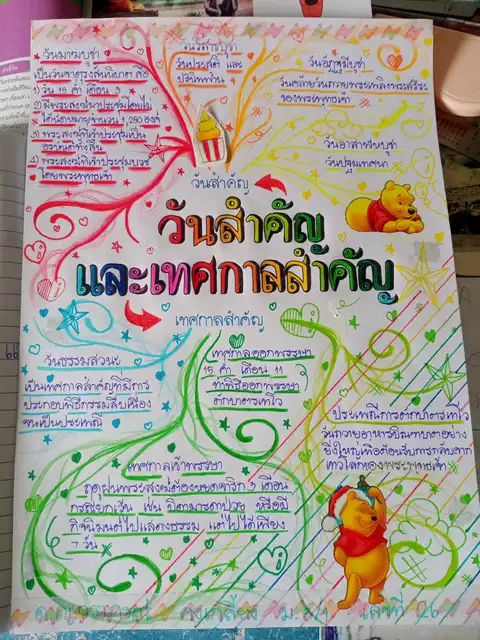 วันมาฆบูชา
เป็นวันจาตุรงคสันนิบาต คือ
1) วัน 15 ค่ำ เดือน 3
2) มีพระสงฆ์มาประชุมโดยไม่
ได้นัดหมายจำนวน 1,250 องค์
3) พระสงฆ์ที่เข้าประชุมเป็น
อรหันต์ทั้งสิ้น
4) พระสงฆ์ที่เข้าประชุมบวช
โดยพระพุทธเจ้า
วันวิสาขบูชา
วันประสูติ และ
ปรินิพพาน
วันอัฏฐมีบูชา
วันคล้ายวันถวายพระเพลิงพระสรีระ
ของพระพุทธเจ้า
วันอาสาฬหบูชา
วันปฐมเทศนา
วันสำคัญ
วันสำคัญ
และเทศกาลสำคัญ
เทศกาลสำคัญ
วันธรรมสวนะ
เป็นเทศกาลสำคัญที่มีการ
ประกอบพิธีกรรมสืบเนื่อง
จนเป็นประเพณี
เทศกาลออกพรรษา
15 ค่ำ เดือน 11
ทำพิธีออกพรรษา
ตักบาตรเทโว
ประเพณีการตักบาตรเทโว
วันถวายอาหารบิณฑบาตอย่าง
ยิ่งใหญ่เพื่อต้อนรับการกลับจาก
เทวโลกของพระพุทธเจ้า
เทศกาลเข้าพรรษา
ฤดูฝนพระสงฆ์ต้องหยุดจาริก 3 เดือน
กรณียกเว้น เช่น บิดามารดาป่วย หรือมี
กิจนิมนต์ไปแสดงธรรม แต่ไปได้เพียง
7 วัน
ม. 6/1 เลขที่ 26